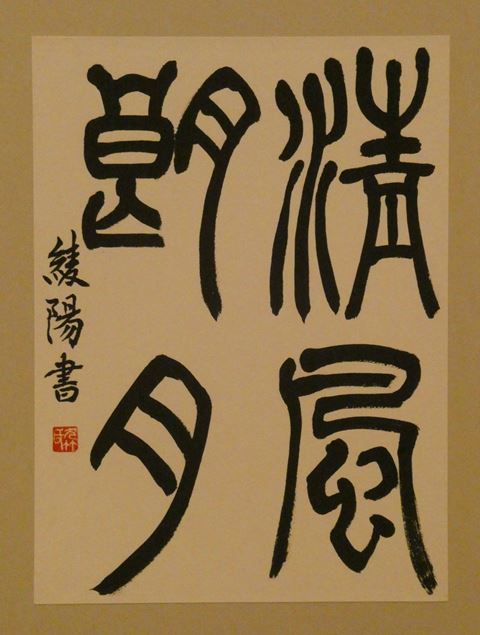 清風
朗月
綾陽書